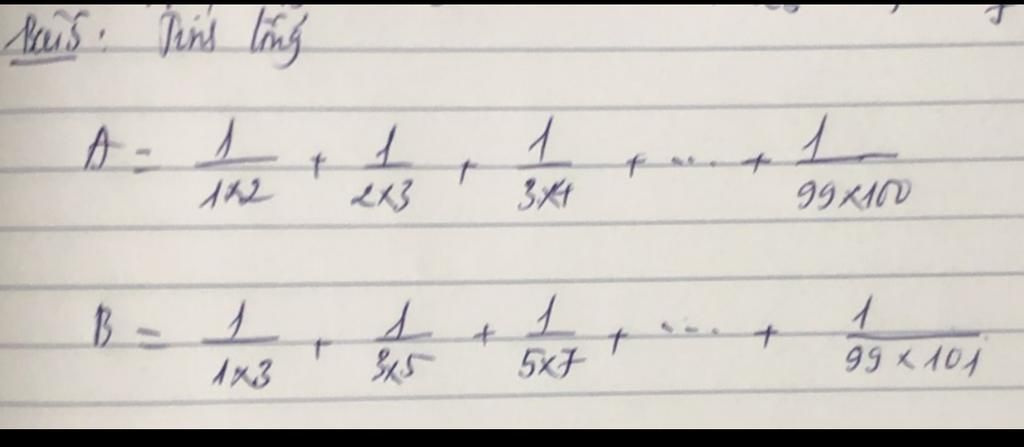 Bài 5: Tính tổng
A = 1/(1×2) + 1/(2×3) + 1/(3×4) + .... + 1/(99×100)
B = 1/(1×3) + 1/(3×5) + 1/(5×7) + .... + 1/(99×101)